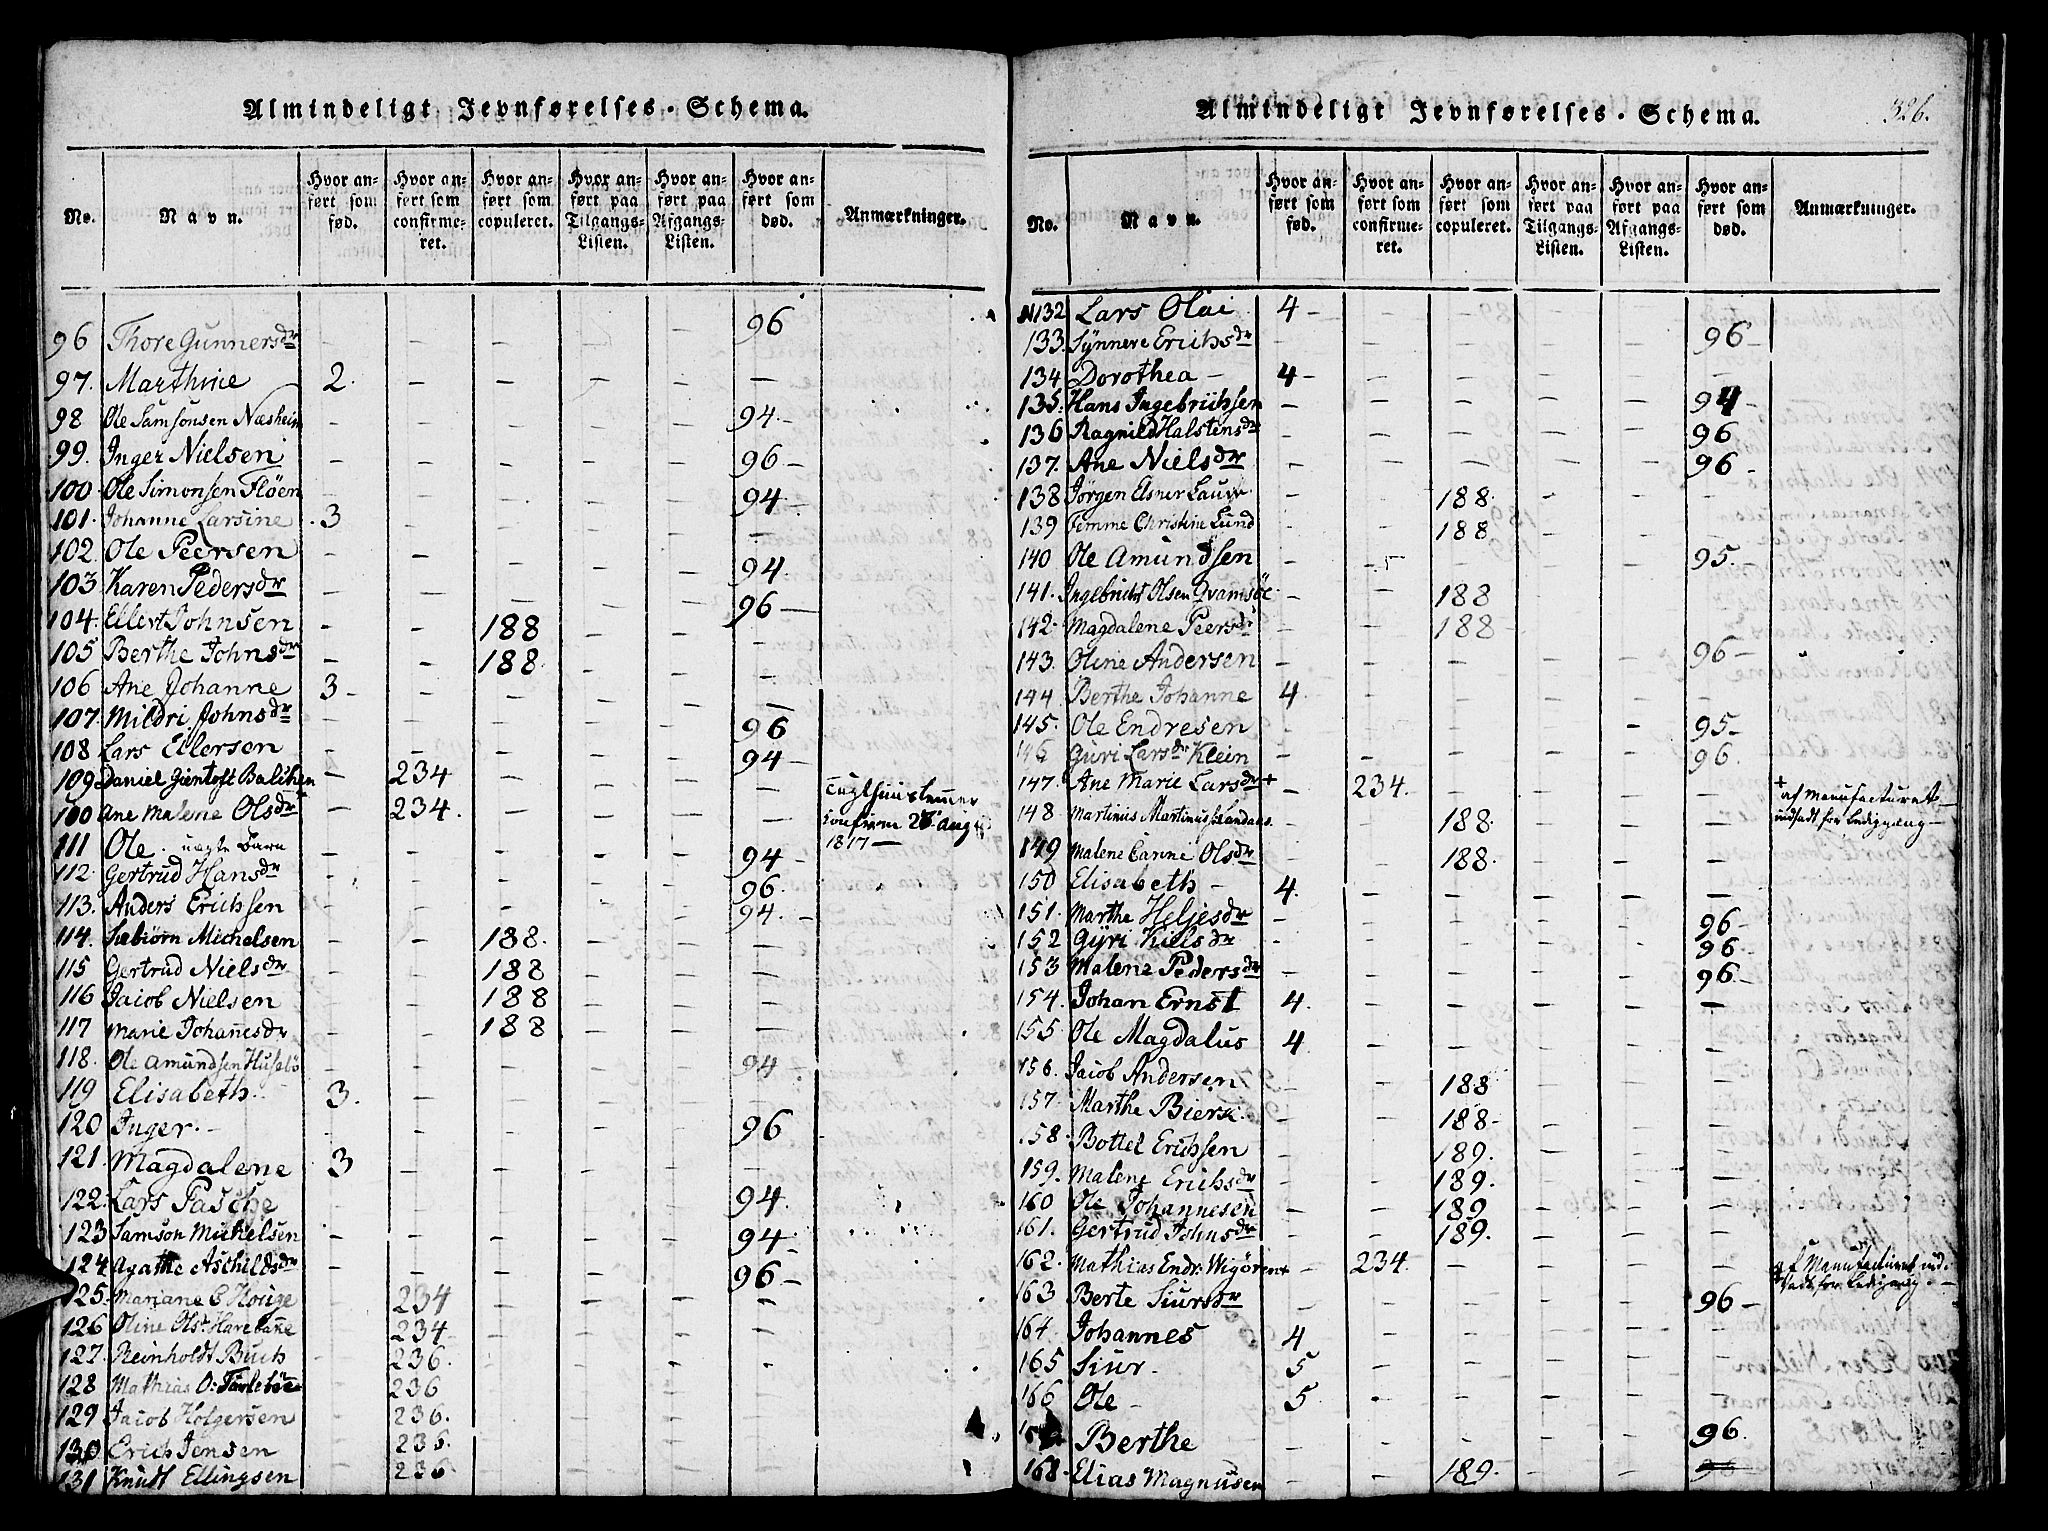 Almindeligt Jevnførelses-Schema.
No. Navn. Hvor anført som fød. Hvor anført som confirmeret. Hvor anført som copuleret. Hvor anført paa Tilgangs-Listen. Hvor anført paa Afgangs-Listen. Hvor anført som død. Anmærkninger.
96 Thore Gunnersdr - - - - - 96
97. Marthine 2. - - - - -
98 Ole Samsonsen Næsheim - - - - - 94.-
99. Inger Nielsen - - - - - 96-
100. Ole Simonsen Fløen - - - - - 94-
101. Johanne Larsine 3 - - - - -
102. Ole Peersen - - - - - 94.
103 Karen Pedersdr - - - - - 96-
104. Ellert Johnsen - - 188 - - -
105 Berthe Johnsdr - - 188. - - -
106 Ane Johanne 3- - - - - -
107. Mildri Johnsdr - - - - - 96
108 Lars Ellersen - - - - - 94-
109 Daniel Gientoft - 234 - - - -
100 Ane Malene Olsdr - 234. - - - - confirm 1817-
111 Ole. uegte Barn - - - - - 94-
112. Gertrud Hansdr - - - - - 96.
113. Anders Erichsen - - - - - 94.-
114. Sæbiørn Michelsen - - 188. - - -
115 Gertrud Nielsdr - - 188 - - -
116 Jacob Nielsen - - 188 - - -
117 Marie Johanesdr - - 188 - - -
118. Ole Amundsen Husebø - - - - - 94.
119 Elisabeth. 3. - - - - -
120 Inger.- - - - - - 96
121. Magdalene 3 - - - - -
122. Lars Pasche - - - - - 94.
123 Samson Michelsen - - - - - 94.-
124 Agathe Aschildsdr - - - - - 96-
125. Mariane - 234 - - - -
126 Oline Olsdr - 234 - - - -
127. Reinholdt Buch - 236. - - - -
128 Mathias O: - 236 - - - -
129 Jacob Holgersen - 236. - - - -
130 Erich Jensen - 236. - - - -
131 Knudt Ellingsen - 236 - - - -
Almindeligt Jevnførelses-Schema. 326.
No. Navn. Hvor anført som fød. Hvor anført som confirmeret. Hvor anført som copuleret. Hvor anført paa Tilgangs-Listen. Hvor anført paa Afgangs-Listen. Hvor anført som død. Anmærkninger.
N132 Lars Olai 4- - - - - -
133. Synnere Erichsdr - - - - - 96-
134 Dorothea - 4- - - - - -
135. Hans Ingebrichsen - - - - - 94-
136 Ragnild Halstensdr - - - - - 96
137. Ane Nielsdr - - - - - 96-
138 Jørgen Elsner Lauw - - 188. - - -
139 Femme Christine Lund - - 188 - - -
140 Ole Amundsen - - - - - 95.-
141. Ingebricht Olsen Qvamsøe - - 188 - - -
142- Magdalene Peersdr - - 188- - - -
143. Oline Andersen - - - - - 96-
144 Berthe Johanne 4. - - - - -
145. Ole Endresen - - - - - 95-
146 Guri Larsdr Klein - - - - - 96.
147. Ane Marie Larsdr + - 234.- - - - - + af Manufacturet indsadt for Lediggang-
148 Martinius Martinius - - 188. - - -
149 Malene Carine Olsdr - - 188. - - -
150 Elisabeth - 4. - - - - -
151. Marthe Heljesdr - - - - - 96-
152 Gyri Kielsdr - - - - - 96-
153 Malene Pedersdr - - - - - 96-
154. Johan Ernst 4. - - - - -
155 Ole Magdalus 4. - - - - -
156. Jacob Andersen - - 188 - - -
157. Marthe Biers. - - 188- - - -
158. Bottel Erichsen - - 189. - - -
159. Malene Erichsdr - - 189. - - -
160 Ole Johannesen - - 189. - - -
161. Gertrud Johnsdr - - 189. - - -
162. Mathias Endr: Wigøren+ - 234. - - - - af Manufacturet ind- for
163 Berte Siursdr - - - - - 96-
164. Johannes 4 - - - - -
165 Siur - 5 - - - - -
166 Ole - 5. - - - - -
Berthe - - - - - 96.
168- Elias Magnusen - - 189. - - - 96